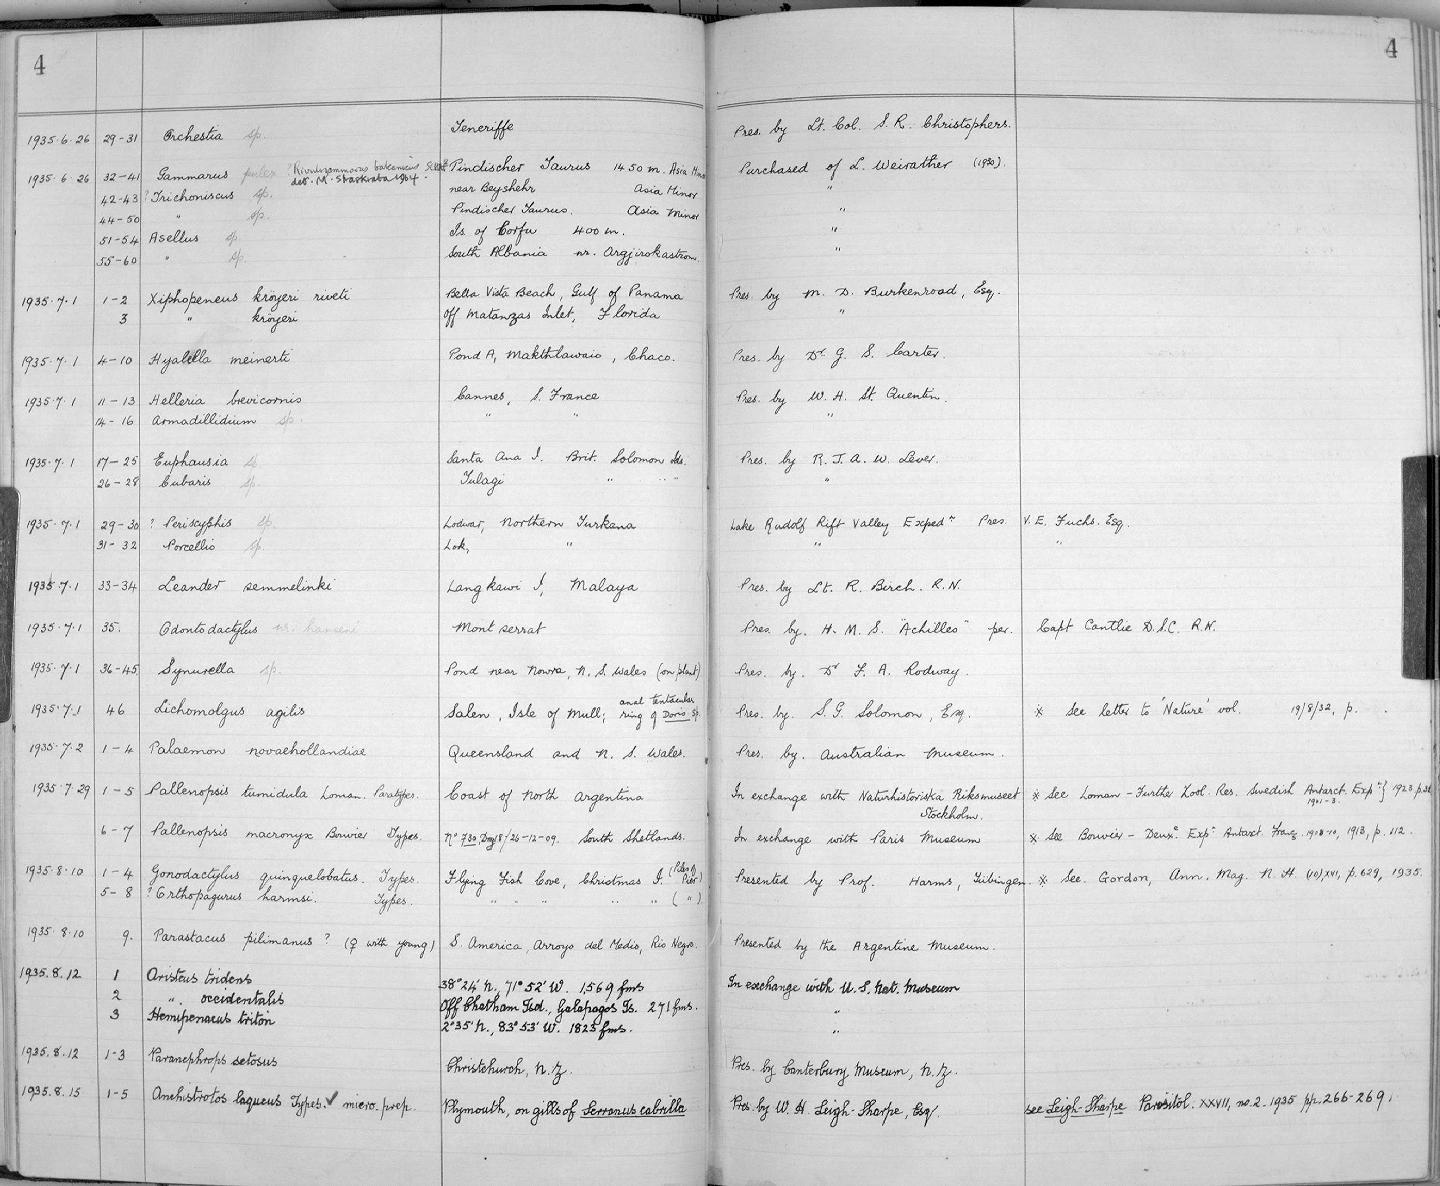 4 4
1935.6.26 29-31 Orchestia sp. Teneriffe Pres. by Lt. Col. S. R. Christophers.
1935.6.26 32-41 Gammarus pulex ? Rivulogammarus balcanicus det. M. Straskraba 1964. Pindischer Taurus 1450 m. Asia Minor Purchased of L. Weirather (1930).
42-43 ? Trichoniscus sp. near Beyshehr Asia Minor "
44-50 " sp. Pindischer Taurus. Asia Minor "
51-54 Asellus sp. Is. of Corfu 400 m. "
55-60 " sp. South Albania nr. Argjirokastron. "
1935.7.1 1-2 Xiphopeneus kröyeri riveti Bella Vista Beach, Gulf of Panama Pres. by M. D. Burkenroad, Esq.
3 " kröyeri Off Matanzas Inlet, Florida "
1935.7.1 4-10 Hyalella meinerti Pond A, Makthlawaio, Chaco. Pres. by Dr. G. S. Carter.
1935.7.1 11-13 Helleria brevicornis Cannes, S. France Pres. by W. H. St. Quentin.
14-16 Armadillidium sp. " " "
1935.7.1 17-25 Euphausia sp. Santa Ana I. Brit. Solomon Ids. Pres. by R. J. A. W. Lever.
26-28 Cubaris sp. Tulagi " " " "
1935.7.1 29-30 ? Periscyphis sp. Lodwar, Northern Turkana Lake Rudolf Rift Valley Expedn Pres. V. E. Fuchs. Esq.
31-32 Porcellio sp. Lok, " " "
1935.7.1 33-34 Leander semmelinki Langkawi I, Malaya Pres. by Lt. R. Birch. R.N.
1935.7.1 35. Odontodactylus nr. hanseni Montserrat Pres. by. H.M.S. "Achilles" per. Capt Cantlie D.S.C. R.N.
1935.7.1 36-45 Synurella sp. Pond near Nowra, N. S. Wales (on plant) Pres. by. Dr F. A. Rodway.
1935.7.1 46 Lichomolgus agilis Salen, Isle of Mull; anal tentacular ring of Doris sp. Pres. by. S. G. Solomon, Esq. * See letter to 'Nature' vol. 19/8/32, p.
1935.7.2 1-4 Palaemon novaehollandiae Queensland and N. S. Wales. Pres. by. Australian Museum.
1935.7.29 1-5 Pallenopsis tumidula Loman. Paratypes. Coast of North Argentina In exchange with Naturhistoriska Riksmuseet Stockholm. * See Loman - Further Zool. Res. Swedish Antarct. Expn 1901-3. } 1923 p.
6-7 Pallenopsis macronyx Bouvier Types. No 730, Drag 18/26-12-09. South Shetlands. In exchange with Paris Museum * See Bouvier - Deuxe Expn Antarct. Franç. 1908-10, 1913, p. 112.
1935.8.10 1-4 Gonodactylus quinquelobatus. Types. Flying Fish Cove, Christmas I. (Piles of Pier) Presented by Prof. Harms, Tübingen. * See. Gordon, Ann. Mag. N. H. (10) XVI, p. 629, 1935.
5-8 ? Orthopagurus harmsi. Types. " " " " " ( " )
1935.8.10 9. Parastacus pilimanus ? (♀ with young) S. America, Arroyo del Medio, Rio Negro. Presented by the Argentine Museum.
1935.8.12 1 Aristeus tridens 38° 24' N., 71° 52' W. 1569 fms In exchange with U. S. Nat. Museum
2 " occidentalis Off Chatham Isd., Galapagos Is. 271 fms. "
3 Hemipenaeus triton 2° 35' N., 83° 53' W. 1823 fms. "
1935.8.12 1-3 Paranephrops setosus Christchurch, N.Z. Pres. by Canterbury Museum, N.Z.
1935.8.15 1-5 Anchistrotos laqueus Types. ✓ micro. prep. Plymouth, on gills of Serranus cabrilla Pres. by W. H. Leigh-Sharpe, Esq. see Leigh-Sharpe Parasitol. XXVII, no. 2. 1935 pp. 266-269.